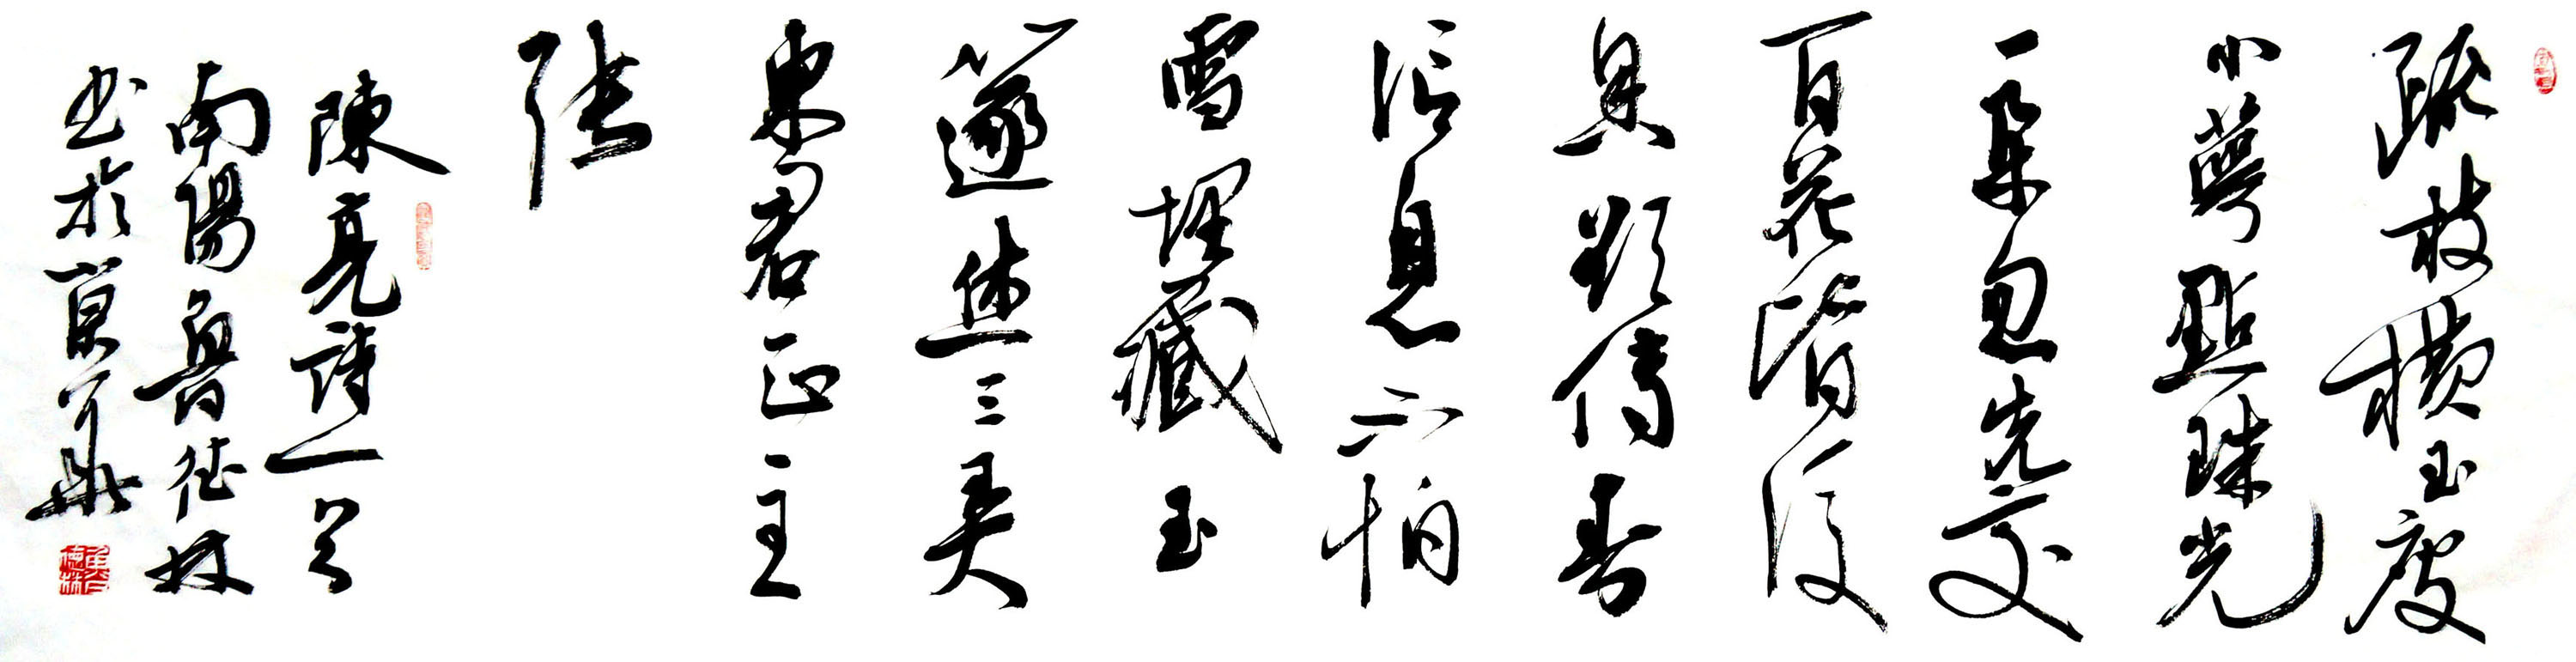 疏枝橫玉瘦
小萼點珠光
一朵忽先变
百花皆後
香欲傳春
信息不怕
雪埋藏玉
篴休三弄
東君正主
張
陳亮詩一首
南陽魯德林
书於京華